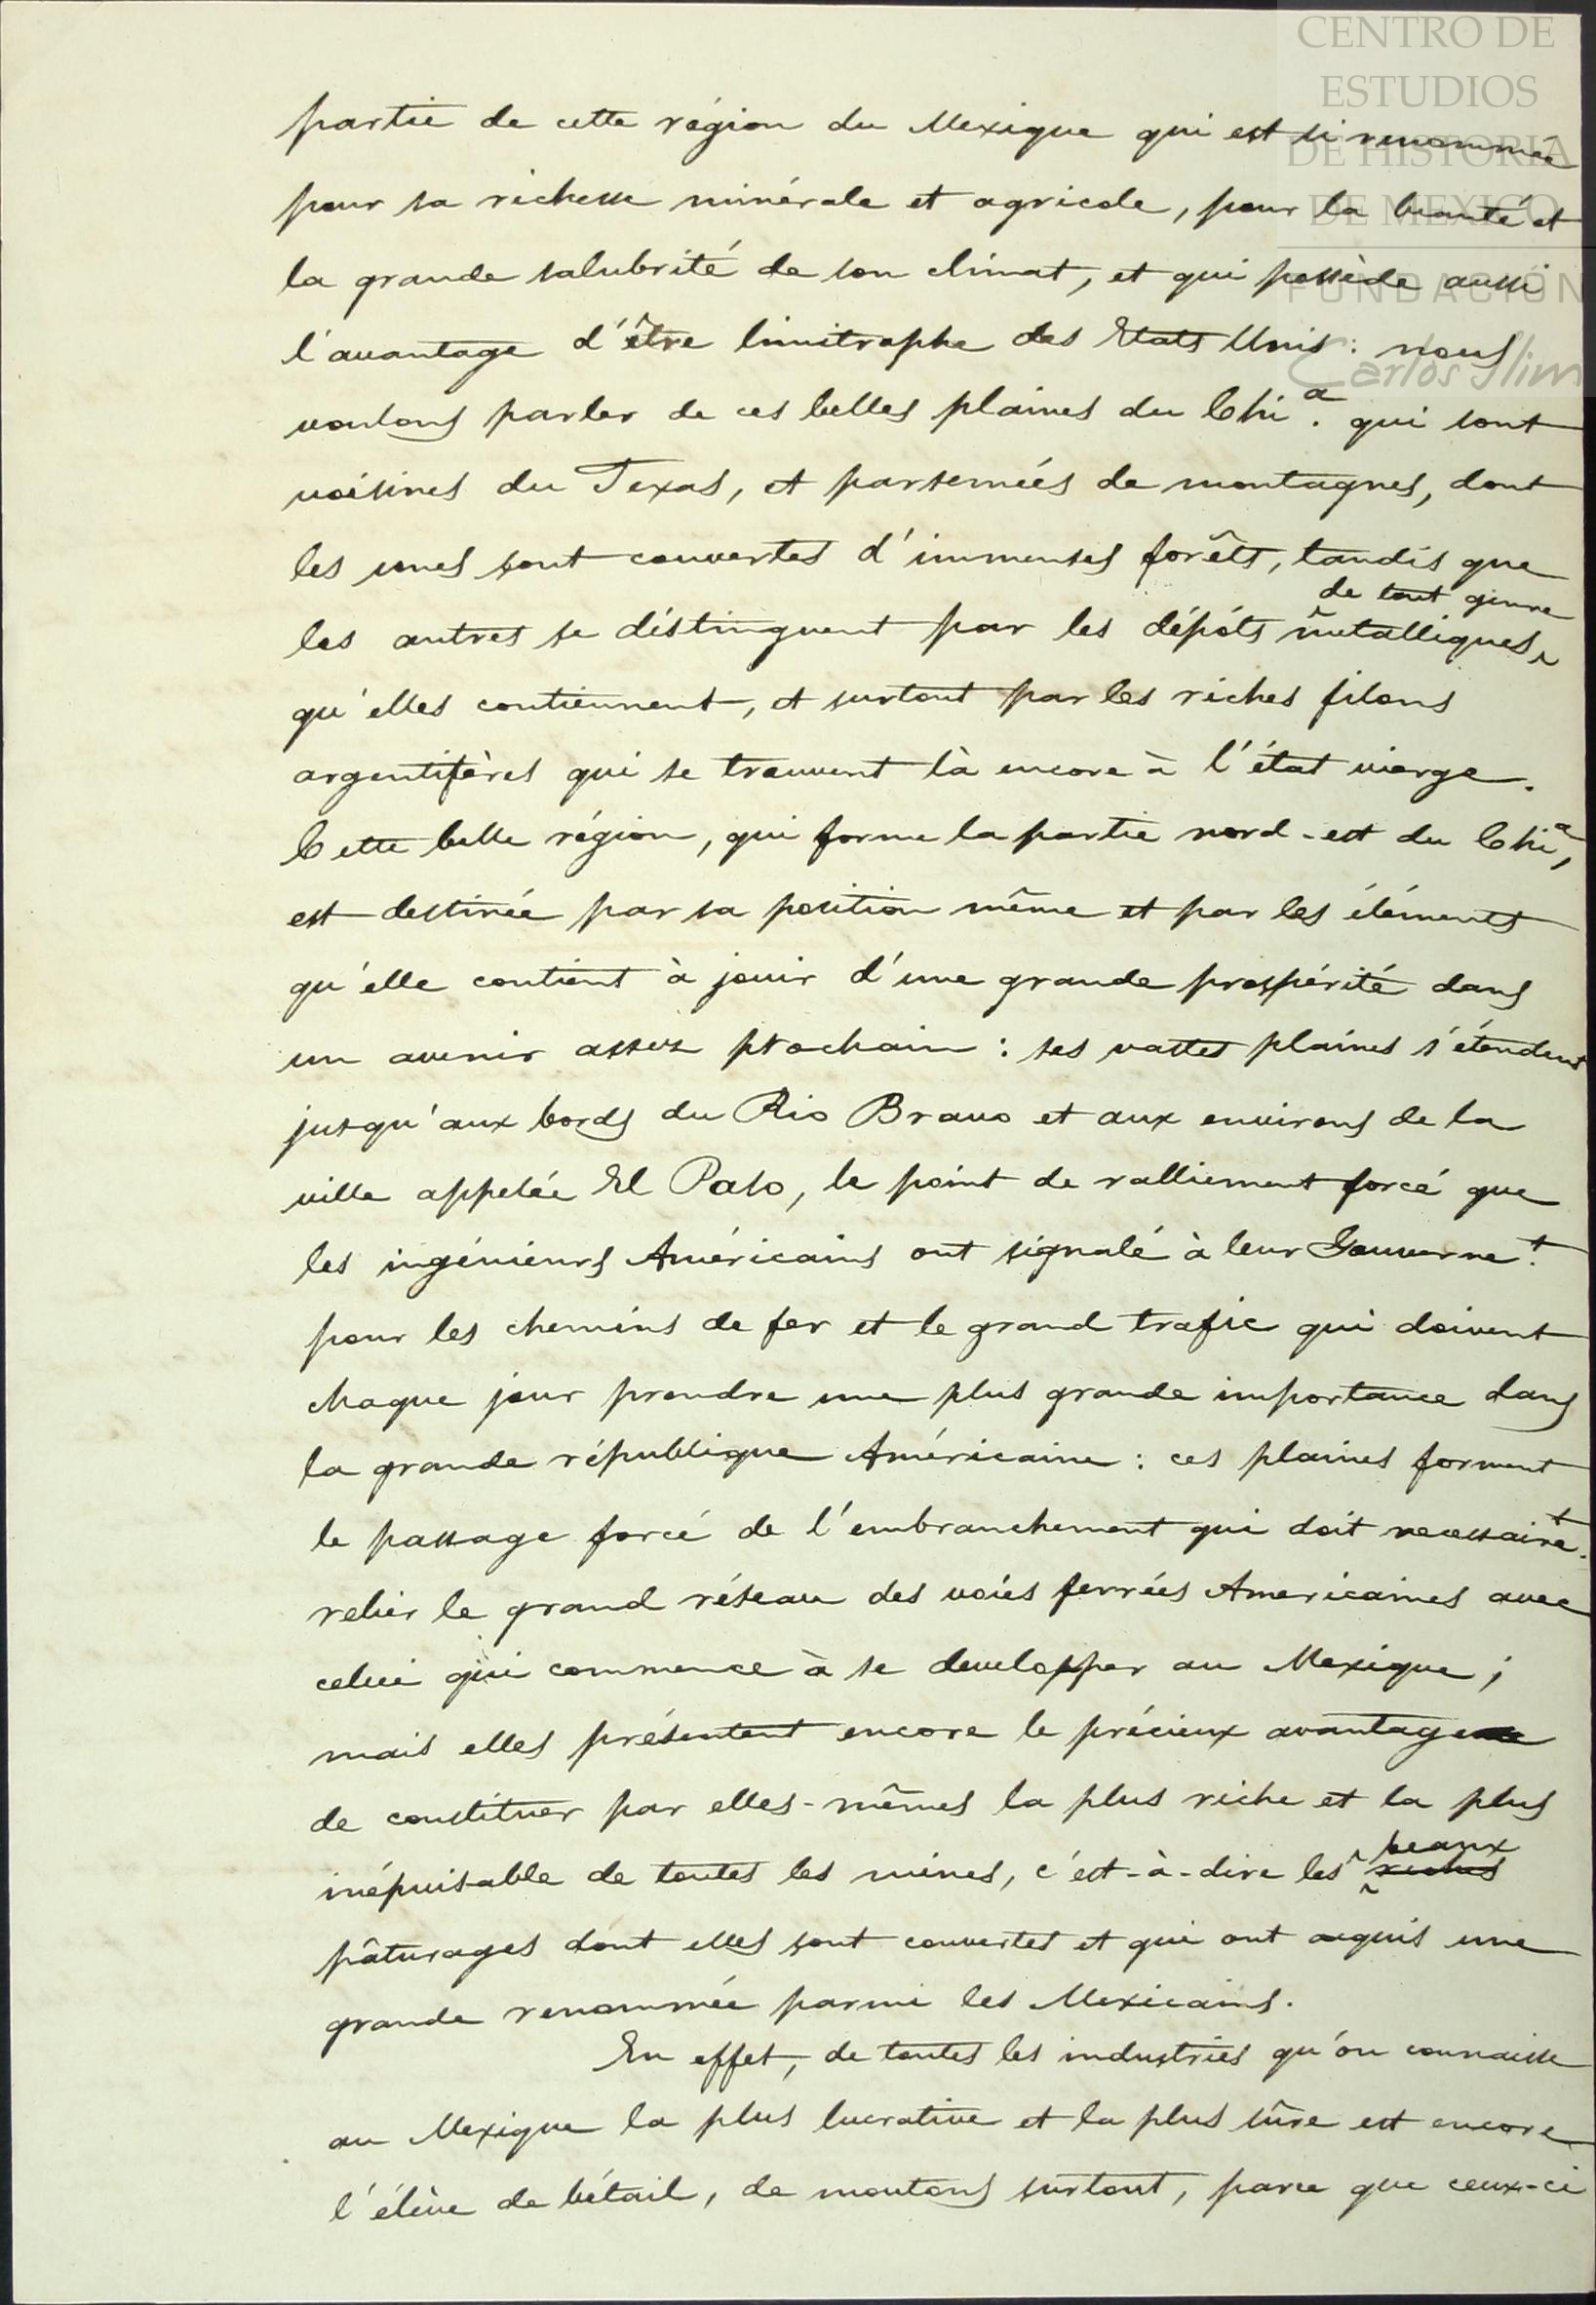 CENTRO DE
ESTUDIOS
DE HISTORIA
DE MEXICO
FUNDACIÓN
Carlos Slim
partie de cette région du Mexique qui est si renommée
pour sa richesse minérale et agricole, pour la beauté et
la grande salubrité de son climat, et qui possède aussi
l'avantage d'être limitrophe des Etats Unis : nous
voulons parler de ces belles plaines du Chiª. qui sont
voisines du Texas, et parsemées de montagnes, dont
les unes sont couvertes d'immenses forêts, tandis que
de tout genre
les autres se distinguent par les dépôts metalliques
qu'elles contiennent, et surtout par les riches filons
argentifères qui se trouvent là encore à l'état vierge.
Cette belle région, qui forme la partie nord-est du Chiª,
est destinée par sa position même et par les éléments
qu'elle contient à jouir d'une grande prospérité dans
un avenir assez prochain : ses vastes plaines s'étendent
jusqu'aux bords du Rio Bravo et aux environs de la
ville appelée El Paso, le point de ralliement forcé que
les ingénieurs Américains ont signalé à leur Gouverneᵗ.
pour les chemins de fer et le grand trafic qui doivent
chaque jour prendre une plus grande importance dans
la grande république Américaine : ces plaines forment
le passage forcé de l'embranchement qui doit necessaireᵗ.
relier le grand réseau des voies ferrées Americaines avec
celui qui commence à se developper au Mexique ;
mais elles présentent encore le précieux avantage
de constituer par elles-mêmes la plus riche et la plus
beaux
inépuisable de toutes les mines, c'est-à-dire les riches
pâturages dont elles sont couvertes et qui ont acquis une
grande renommée parmi les Mexicains.
En effet, de toutes les industries qu'on connaisse
au Mexique la plus lucrative et la plus sûre est encore
l'élève de bétail, de moutons surtout, parce que ceux-ci